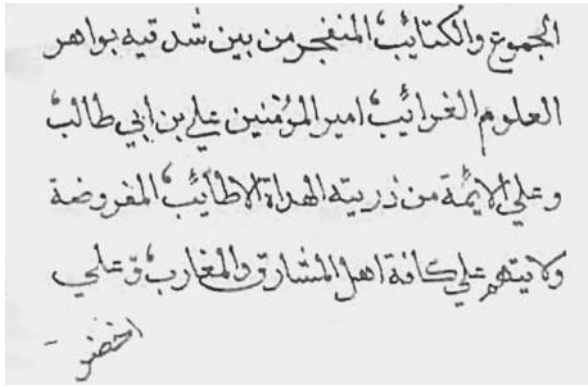 الجموع والكتايب المنفجر من بين شدقيه بواهر
العلوم الغرايب امير المؤمنين علي بن ابي طالب
وعلي الايمة من ذريته الهداة الاطايب المفروضة
ولايتهم علي كافة اهل المشارق والمغارب وعلي
اخضر